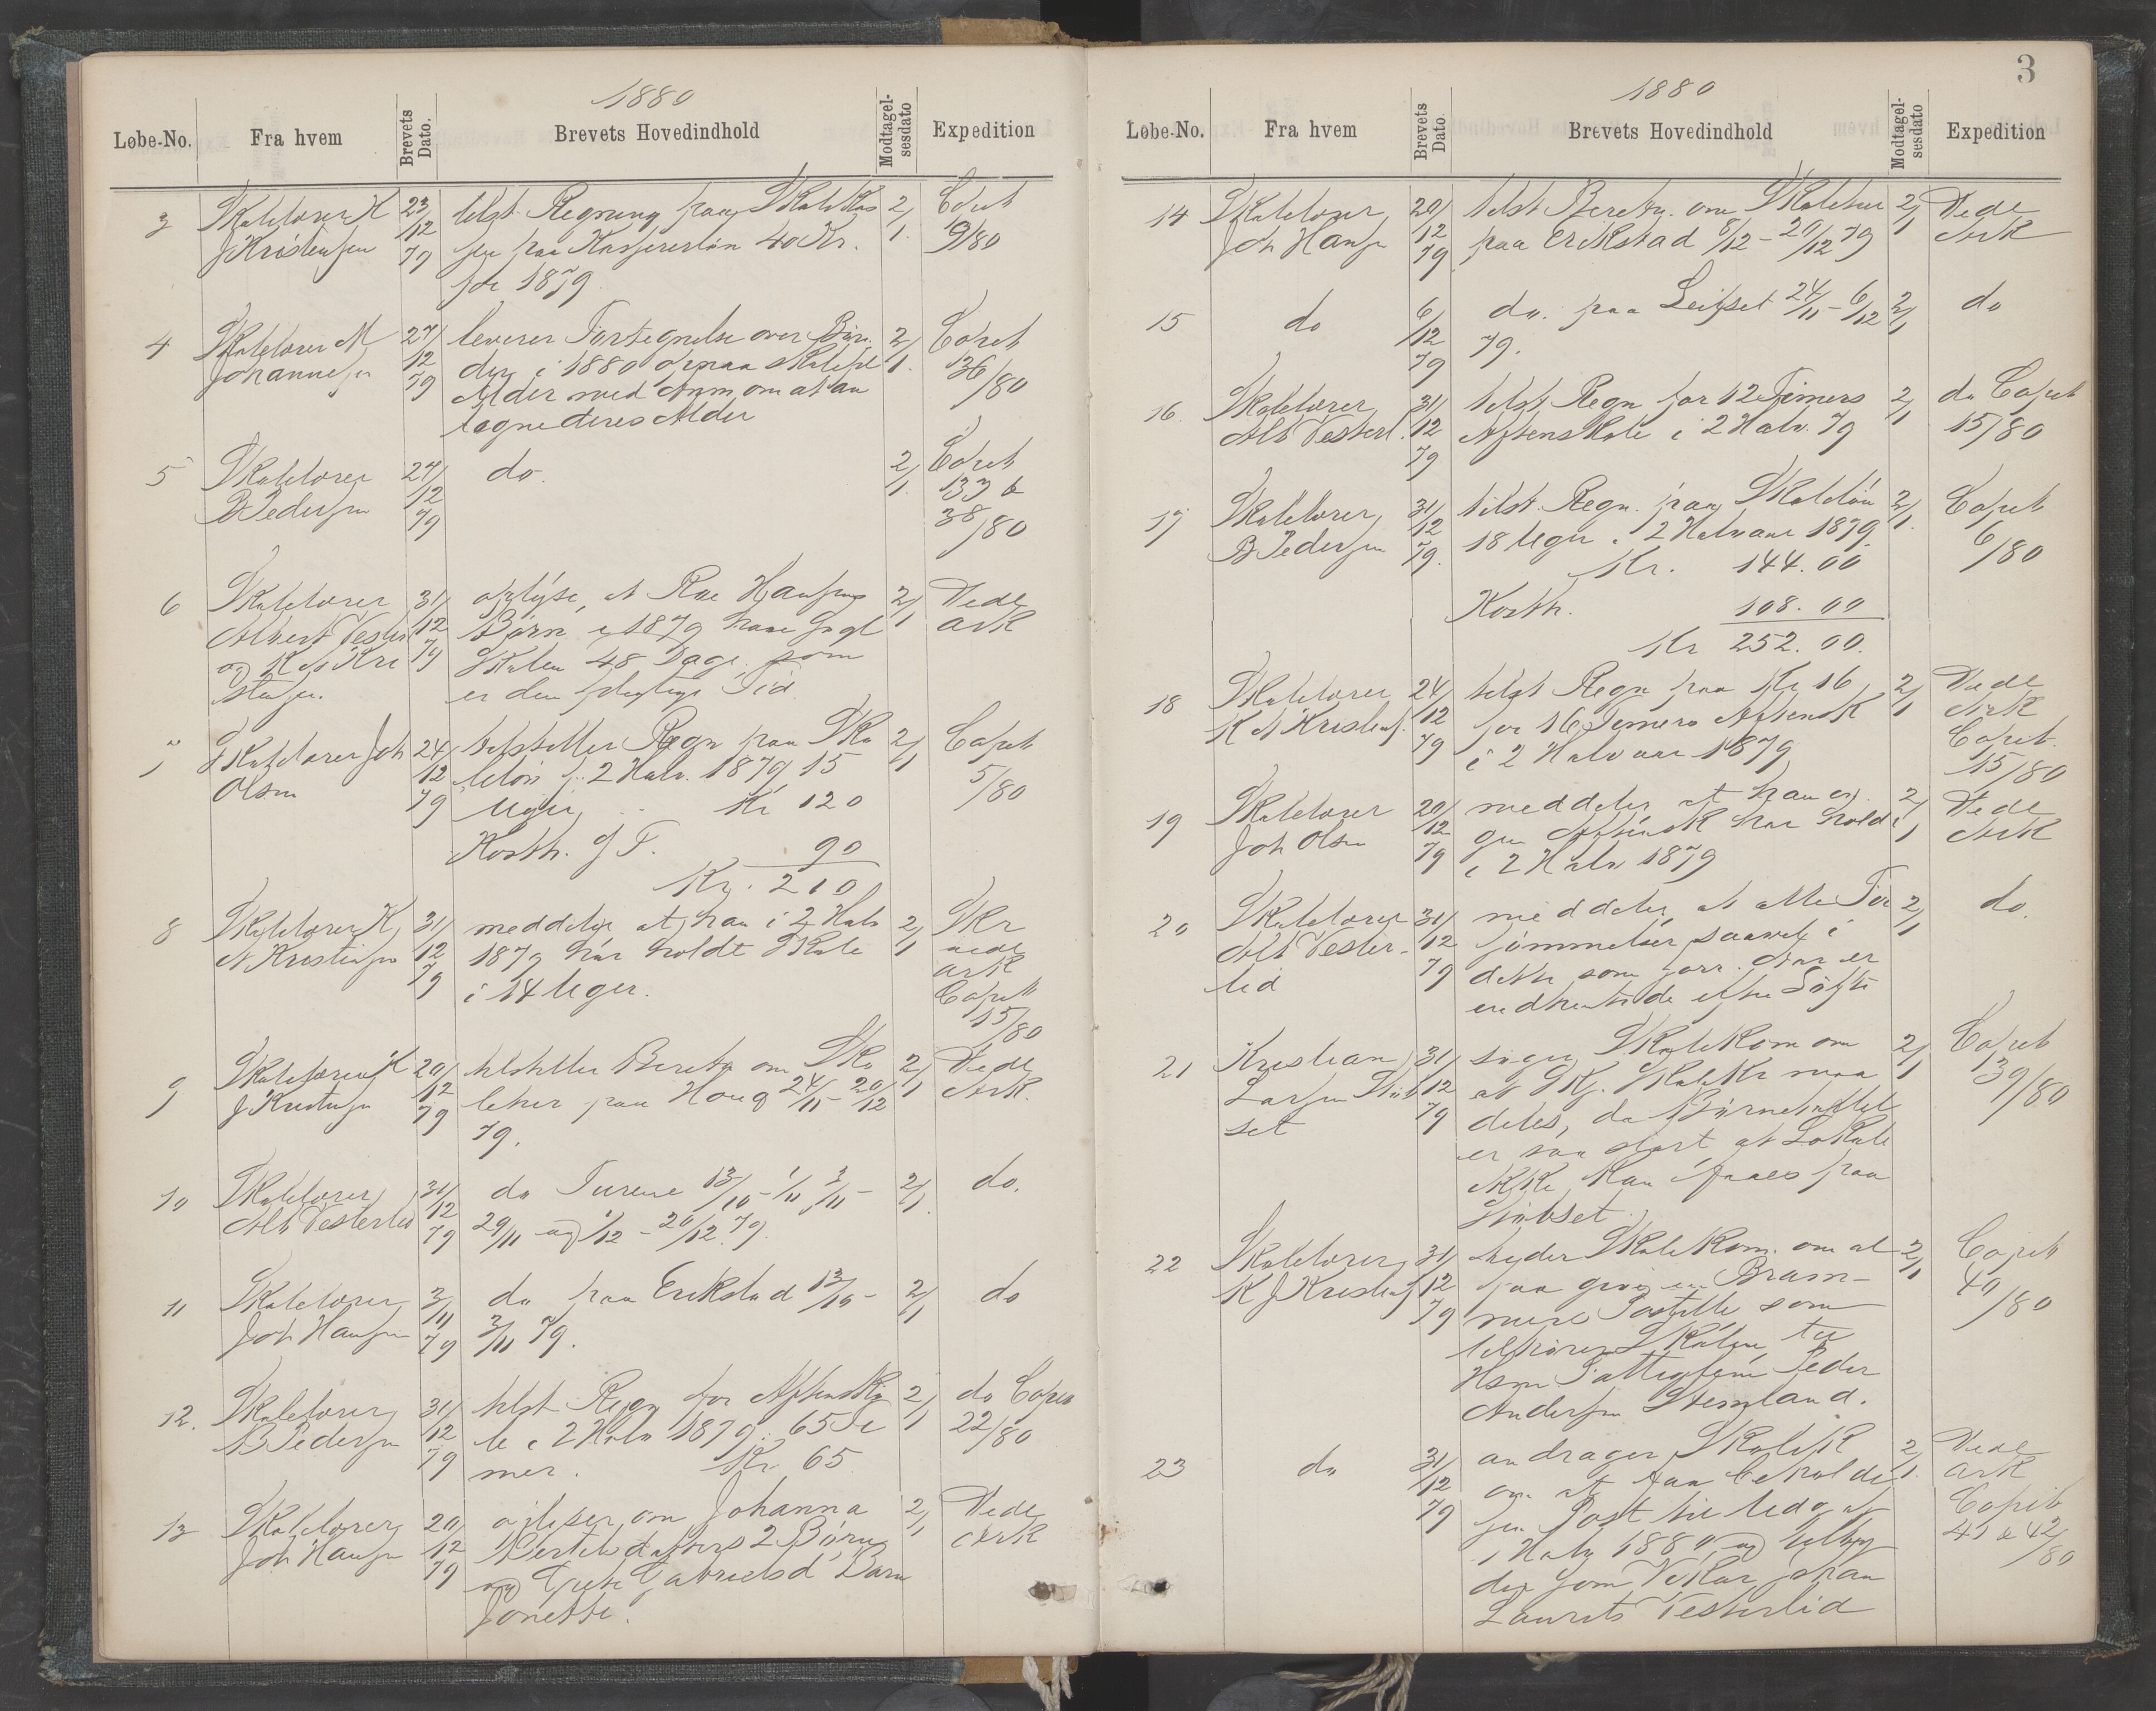 1880
Løbe-No. Fra hvem Brevets Dato. Brevets Hovedindhold Modtagel-sesdato Expedition
3 Skolelærer K 23/ tilst. Regning paa Skolekas 2/ Copieb
J Kristensen 12 sen paa Kassererløn 40 Kr. 1. 9/80
79 for 1879
4 Skolelærer M 27/ leverer Fortegnelse over Børn 2/ Copieb
Johannesen 12 der i 1880 opnaa skolepl 1. 136
79 Alder med Anm om at an /80
tegne deres Alder
5 Skolelærer 27/ do. 2/ Copieb
B Pedersen 12 1. 133 &
79 38/80
6 Skolelærer 31/ oplyse, at Hansens 2/ Vedl
Albert Vester 12 Børn i 1879 have søgt 1 Ark
og K A Kri 79 Skolen 48 Dage som
stensen. er den pligtige Tid.
7 Skolelærer Joh 24/ tilstiller Regn paa Sko 2/ Copieb
Olsen 12 leløn f. 2 Halv. 1879 15 1 5/80
79 Uger Kr 120
Kosth. g T. 90
Kr. 210
8 Skolelærer K 31/ meddeler at han i 2 Halv 2/ Skr
A Kristensen 12 1879 har holdt Skole 1 vedl
79 i 14 Uger. Ark
Copieb
15/80
9 Skolelærer K 20/ tilstiller Beretn om Sko 2/ Vedl
J Kristensen 12 lehus paa Houg 24/11 - 20/12 1 Ark.
79 79.
10 Skolelærer 31/ do Turene 13/10 - 1/11, 3/11 - 2/ do.
Alb Vesterlid 12 29/11 og 1/12 - 20/12 79. 1.
79
11 Skolelærer 3/ do paa Erikstad 13/10 - 2/ do
Joh Hansen 11 3/11 79. 1
79
12. Skolelærer 31/ tilst Regn for Aftensko 2/ do Copieb
B Pedersen 12 le i 2 Halv 1879. 65 Ti 1 22/80
79 mer. Kr 65
13 Skolelærer 20/ oplyser om Johanna 2/ Vedl
Joh Hansen 12 Bertelsdatters 2 Børn 1 Ark
79 og Gabrielsd Barn
Jonette.
3
1880
Løbe-No. Fra hvem Brevets Dato. Brevets Hovedindhold Modtagel-sesdato Expedition
14 Skolelærer 20/ tilst Beretn. om Skolehus 2/ Vedl
Joh Hansen 12 paa Erikstad 8/12 - 20/12 79 1 Ark
79
15 do 6/ do. paa Leifset 24/11 - 6/12 2/ do
12 79. 1
79
16 Skolelærer 31/ tilst Regn for 12 Timers 2/ do Copieb
Alb Vesterl. 12 Aftenskole i 2 Halv. 79 1 15/80
79
17 Skolelærer 31/ tilst. Regn. paa Skoleløn 2/ Copieb
B Pedersen 12 18 Uger i 2 Halvaar 1879. 1. 6/80
79. Kr. 144.00
Kosth. 108.00
Kr 252.00.
18 Skolelærer 24/ tilst Regn paa Kr 16 2/ Vedl
K A Kristens. 12 for 16 Timers Aftensk 1 Ark
79 i 2 Halvaar 1879 Copieb.
15/80
19 Skolelærer 20/ meddeler at han in 2/ Vedl
Joh Olsen 12 gen Aftensk har holdt 1 Ark
79 i 2 Halv 1879
20 Skolelærer 31/ meddeler at alle For 2/ do.
Alb Vester- 12 sømmelser saavel i 1
lid 79 dette som forr. Aar er
indhentede efter Løfte
21 Kristian 31/ søger Skolekom om 2/ Copieb
Larsen 12 at Skj. Skolekr maa 1 139/80
set 79 deles, da Børneantallet
er saa stort at Lokale
ikke kan faaes paa
22 Skolelærer 31/ beder Skolekom. om at 2/ Copieb
K J Kristens 12 faa give en Bram- 1 40
79 mers Postille som /80
tilhører Skolen til
Hsm Peder
Andersen
23 do 31/ andrager Skolek 2/ Vedl
12 om at faa beholde 1. Ark
79 sin Post til Copieb
1 Halv 1880 og 41 & 42
der som Vikar /80
Laurits Vesterlid